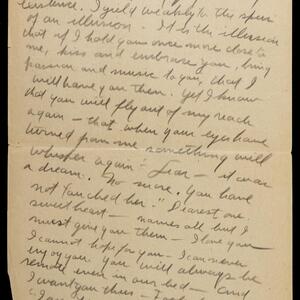 existence. I yield weakly to the spur
of an illusion. It is the illusion
that if I hold you once more close to
me, kiss and embrace you, bring
passion and music to you, that I
will have you then. Yet I know
that you will fly out of my reach
again — that when your eyes have
turned from me something will
whisper again "Dear — it was
a dream. No more. You have
not touched her." Dearest one,
sweetheart — names all but I
must give you them — I love you
I cannot hope for you. I can never
enjoy you. You will always be
remote even in our bed — and
I want you thus —